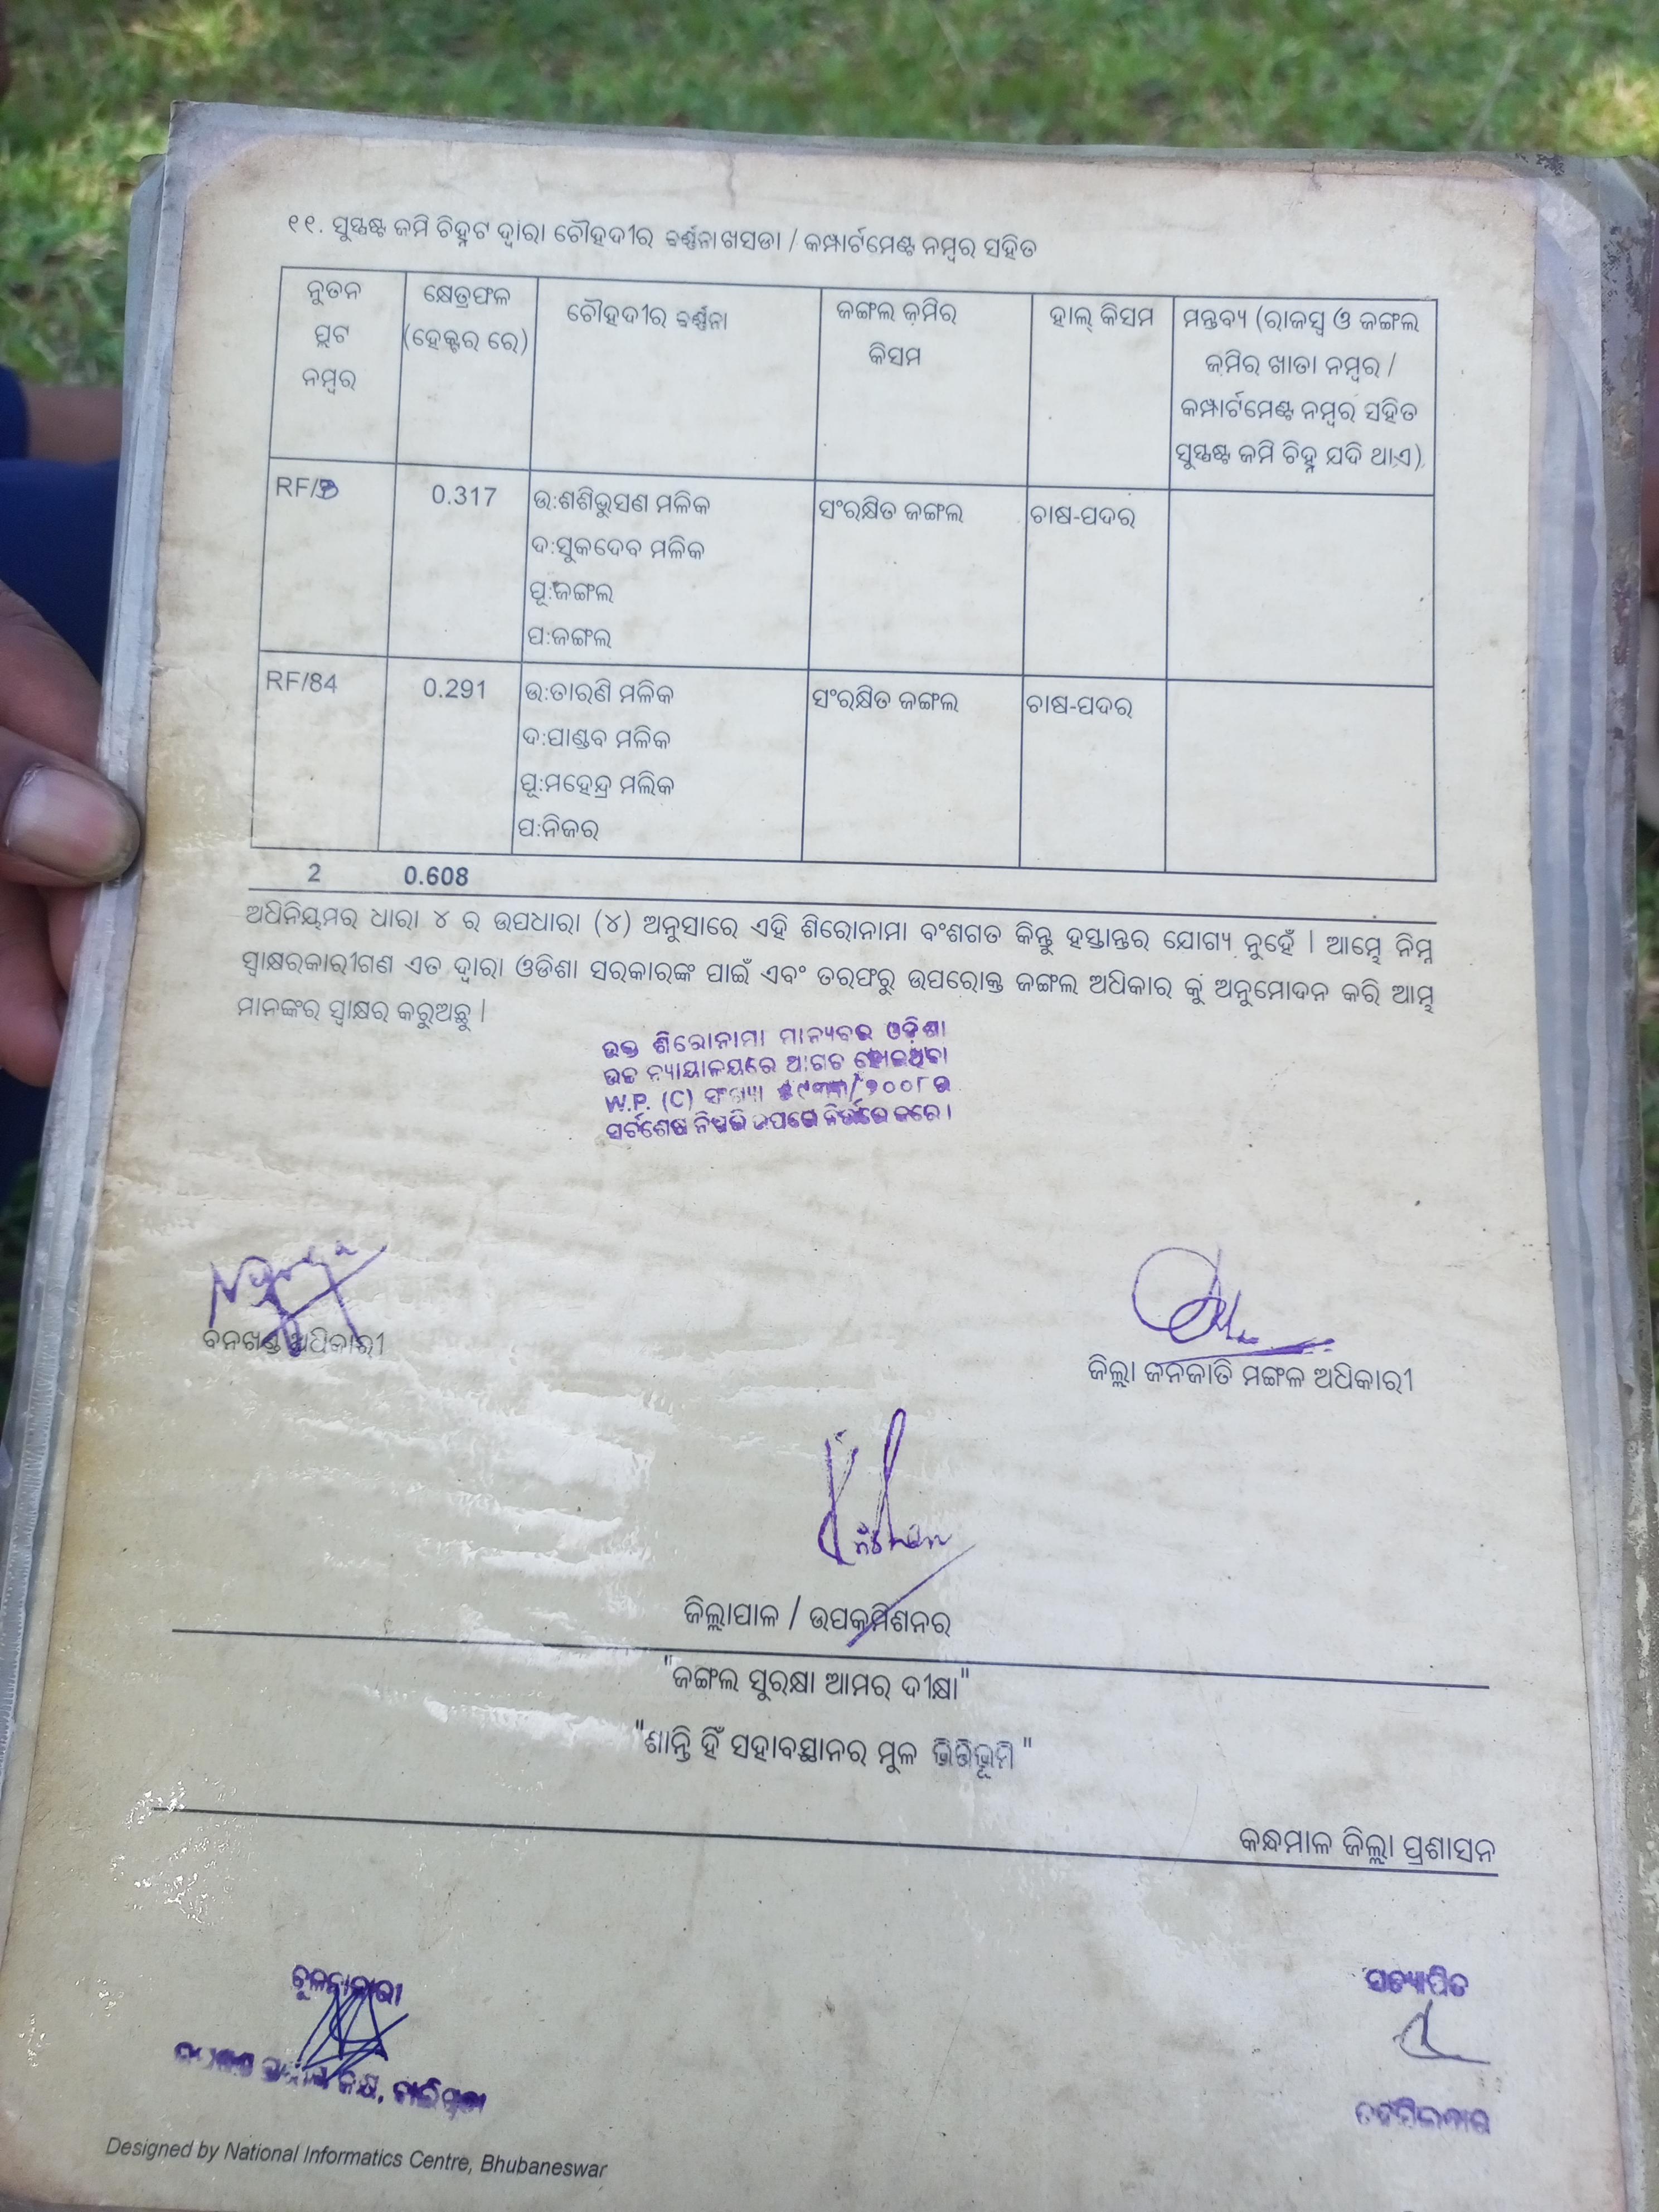 ୧୧. ସୁସ୍ପଷ୍ଟ ଜମି ଚିହ୍ନଟ ଦ୍ଵାରା ଚୌହଦୀର ବର୍ଣ୍ଣନା ଖସଡା / କମ୍ପାର୍ଟମେଣ୍ଟ ନମ୍ବର ସହିତ
ନୁତନ ପ୍ଲଟ ନମ୍ବର
କ୍ଷେତ୍ରଫଳ (ହେକ୍ଟର ରେ)
ଚୌହଦୀର ବର୍ଣ୍ଣନା
ଜଙ୍ଗଲ ଜମିର କିସମ
ହାଲ୍ କିସମ
ମନ୍ତବ୍ୟ (ରାଜସ୍ଵ ଓ ଜଙ୍ଗଲ
ଜମିର ଖାତା ନମ୍ବର /
କମ୍ପାର୍ଟମେଣ୍ଟ ନମ୍ବର ସହିତ
ସୁସ୍ପଷ୍ଟ ଜମି ଚିହ୍ନ ଯଦି ଥାଏ)
RF/ 0.317 ଉ:ଶଶିଭୁସଣ ମଳିକ ସଂରକ୍ଷିତ ଜଙ୍ଗଲ ଚାଷ-ପଦର
ଦ:ସୁକଦେବ ମଳିକ
ପୂ:ଜଙ୍ଗଲ
ପ:ଜଙ୍ଗଲ
RF/84 0.291 ଉ:ତାରଣି ମଳିକ ସଂରକ୍ଷିତ ଜଙ୍ଗଲ ଚାଷ-ପଦର
ଦ:ପାଣ୍ଡବ ମଳିକ
ପୂ:ମହେନ୍ଦ୍ର ମଲିକ
ପ:ନିଜର
2 0.608
ଅଧିନିୟମର ଧାରା ୪ ର ଉପଧାରା (୪) ଅନୁସାରେ ଏହି ଶିରୋନାମା ବଂଶଗତ କିନ୍ତୁ ହସ୍ତାନ୍ତର ଯୋଗ୍ୟ ନୁହେଁ | ଆମ୍ଭେ ନିମ୍ନ
ସ୍ଵାକ୍ଷରକାରୀଗଣ ଏତ ଦ୍ଵାରା ଓଡିଶା ସରକାରଙ୍କ ପାଇଁ ଏବଂ ତରଫରୁ ଉପରୋକ୍ତ ଜଙ୍ଗଲ ଅଧିକାର କୁ ଅନୁମୋଦନ କରି ଆମ୍ଭ
ମାନଙ୍କର ସ୍ଵାକ୍ଷର କରୁଅଛୁ |
ଉକ୍ତ ଶିରୋନାମା ମାନ୍ୟବର ଓଡ଼ିଶା
ଉଚ୍ଚ ନ୍ୟାୟାଳୟରେ ଆଗତ ହୋଇଥିବା
W.P. (C) ସଂଖ୍ୟା
ସର୍ବଶେଷ ନିଷ୍ପତ୍ତି ଉପରେ ନିର୍ଭର କରେ।
ବନଖଣ୍ଡ ଅଧିକାରୀ
ଜିଲ୍ଲା ଜନଜାତି ମଙ୍ଗଳ ଅଧିକାରୀ
ଜିଲ୍ଲାପାଳ / ଉପକମିଶନର
"ଜଙ୍ଗଲ ସୁରକ୍ଷା ଆମର ଦୀକ୍ଷା"
"ଶାନ୍ତି ହିଁ ସହାବସ୍ଥାନର ମୁଳ ଭିତ୍ତିଭୂମି"
କନ୍ଧମାଳ ଜିଲ୍ଲା ପ୍ରଶାସନ
ସତ୍ୟାପିତ
ତହସିଲଦାର
Designed by National Informatics Centre, Bhubaneswar